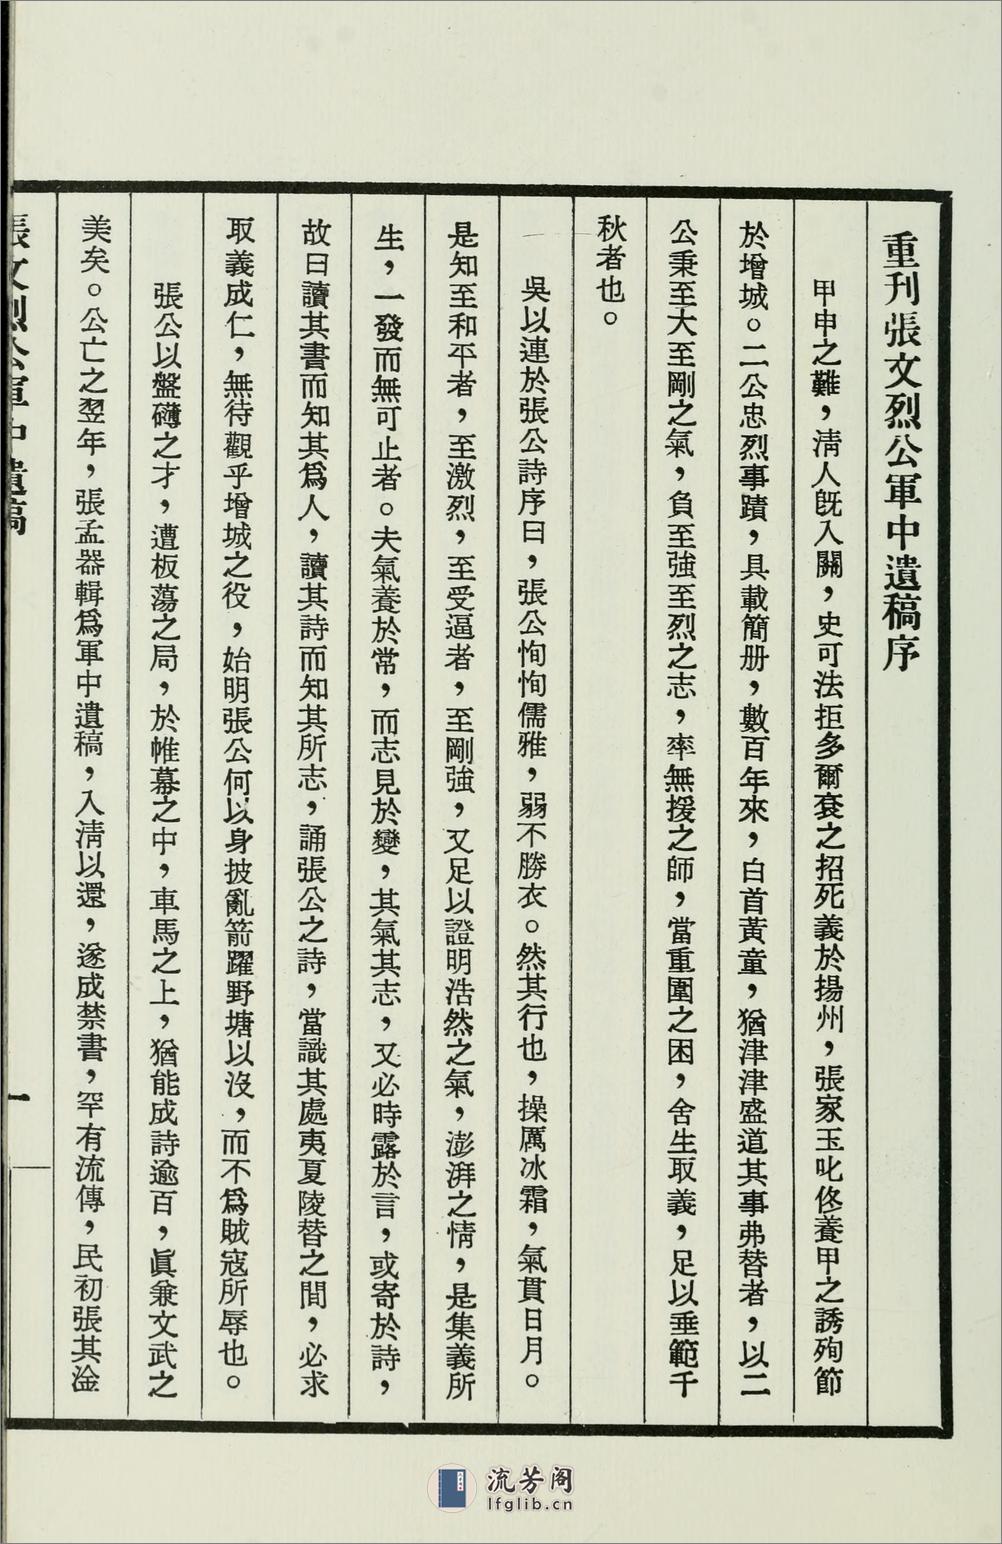 重刊張文烈公軍中遺稿序
甲申之難，淸人旣入關，史可法拒多爾袞之招死義於揚州，張家玉叱佟養甲之誘殉節
於增城。二公忠烈事蹟，具載簡册，數百年來，白首黃童，猶津津盛道其事弗替者，以二
公秉至大至剛之氣，負至強至烈之志，率無援之師，當重圍之困，舍生取義，足以垂範千
秋者也。
吳以連於張公詩序曰，張公恂恂儒雅，弱不勝衣。然其行也，操厲冰霜，氣貫日月。
是知至和平者，至激烈，至受逼者，至剛強，又足以證明浩然之氣，澎湃之情，是集義所
生，一發而無可止者。夫氣養於常，而志見於變，其氣其志，又必時露於言，或寄於詩，
故曰讀其書而知其爲人，讀其詩而知其所志，誦張公之詩，當識其處夷夏陵替之間，必求
取義成仁，無待觀乎增城之役，始明張公何以身披亂箭躍野塘以沒，而不爲賊寇所辱也。
張公以盤礴之才，遭板蕩之局，於帷幕之中，車馬之上，猶能成詩逾百，眞兼文武之
美矣。公亡之翌年，張孟器輯爲軍中遺稿，入淸以還，遂成禁書，罕有流傳，民初張其淦
張文烈公軍中遺稿
一
流芳阁
lfglib.cn